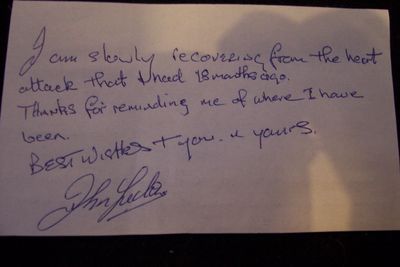 I am slowly recovering from the heart
attack that I had 18 months ago.
Thanks for reminding me of where I have
been.
Best Wishes + you. & yours.
John